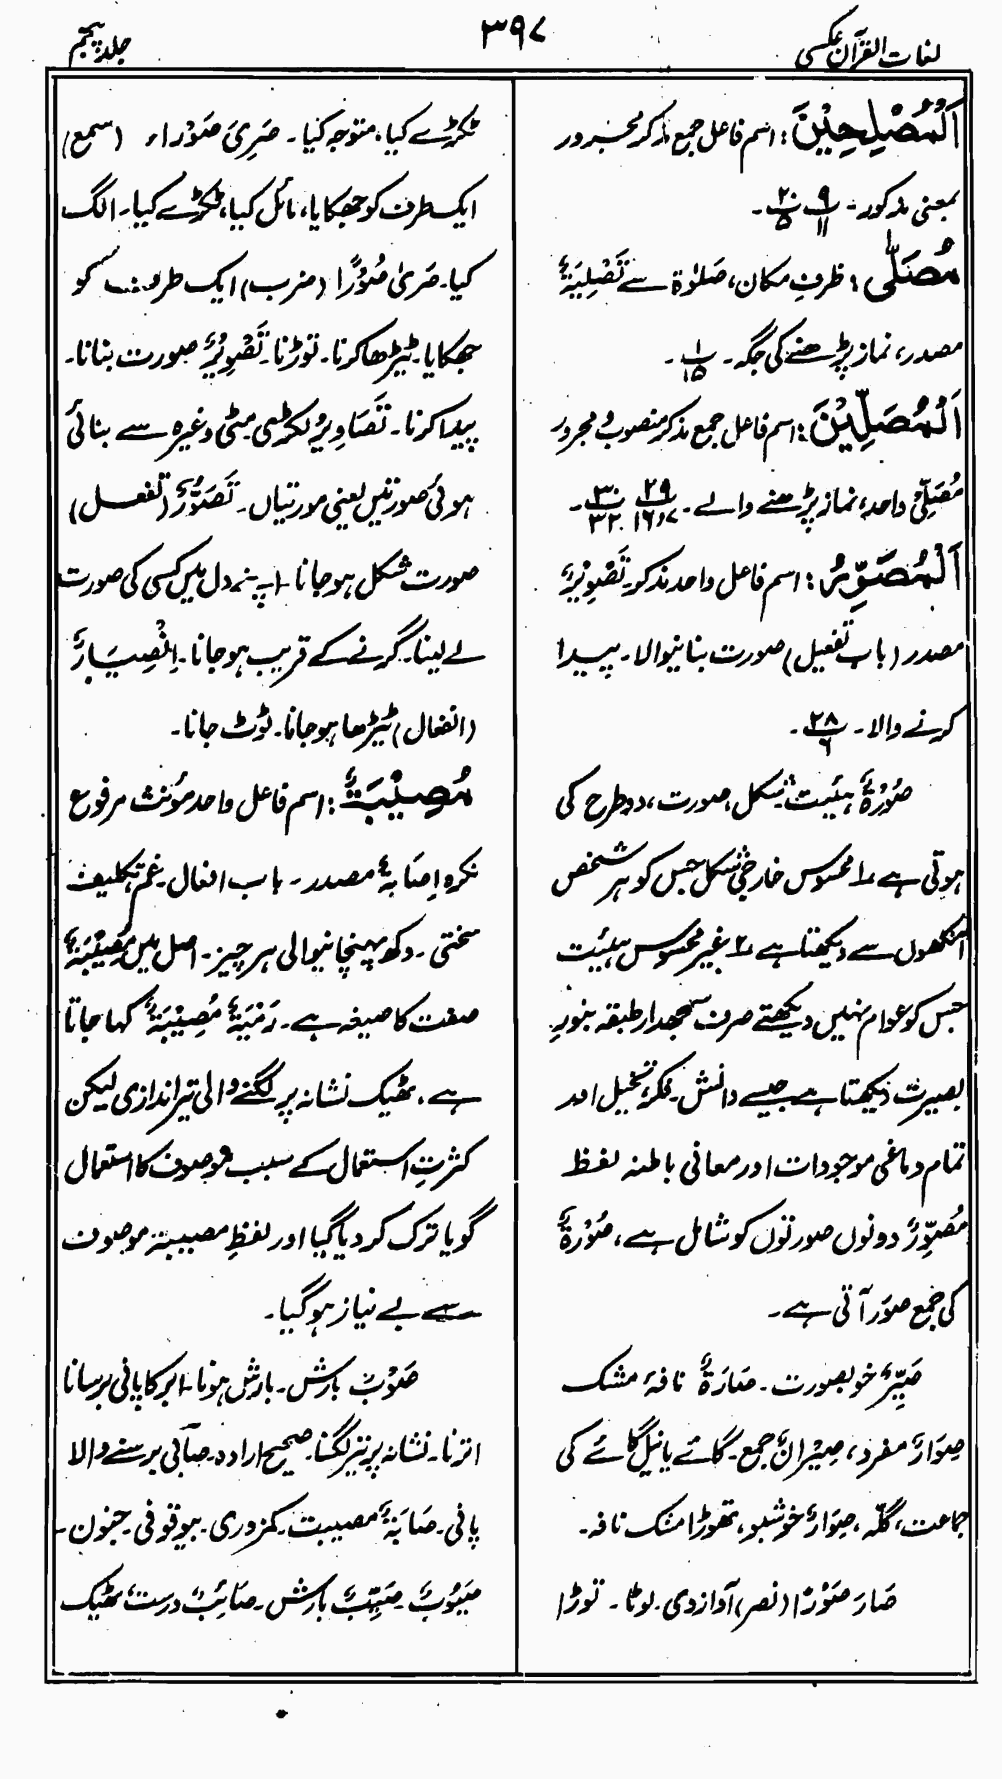 لغات القرآن عکسی
۳۹۷
جلد پنجم
اَلْمُصْلِحِیْنَ: اسم فاعل جمع مذکر مجرور
بمعنی مذکور۔ ۹/۱۱ ۲۰/۵۔
مُصَلًّی: ظرفِ مکان، صَلٰوۃ سے تَصْلِیَۃٌ
مصدر، نماز پڑھنے کی جگہ۔ ۱/۱۵۔
اَلْمُصَلِّیْنَ: اسم فاعل جمع مذکر منصوب و مجرور
مُصَلِّیْ واحد، نماز پڑھنے والے۔ ۲۹/۱۶،۷ ۳۰/۳۲۔
اَلْمُصَوِّرُ: اسم فاعل واحد مذکور تَصْوِیْرٌ
مصدر (باب تفعیل) صورت بنانیوالا۔ پیدا
کرنے والا۔ ۲۸/۶۔
صُوْرَۃٌ ہیئیت شکل، صورت، دو طرح کی
ہوتی ہے ۱ محسوس خارجی شکل جس کو ہر شخص
آنکھوں سے دیکھتا ہے ۲ غیر محسوس ہیئیت
جس کو عوام نہیں دیکھتے صرف سمجھدار طبقہ بنورِ
بصیرت دیکھتا ہے جیسے دانش۔ فکر، تخیل اور
تمام دماغی موجودات اور معانی باطنہ لفظ
مُصَوِّرٌ دونوں صورتوں کو شامل ہے، صُوْرَۃٌ
کی جمع صُوَر آتی ہے۔
صَیِّرٌ خوبصورت۔ صَارَۃٌ نافۂ مشک
صِوَارٌ مفرد، صِیْرَانٌ جمع۔ گائے یا نیل گائے کی
جماعت، گلّہ، صِوَارٌ خوشبو، تھوڑا مشک نافہ۔
صَارَ صَوْرًا (نصر) آواز دی۔ لوٹا۔ توڑا
ٹکڑے کیا، متوجہ کیا۔ صَرِیَ صَوْراء (سمع)
ایک طرف کو جھکایا، مائل کیا، ٹکڑے کیا۔ الگ
کیا۔ صَریٰ صُوْرًا (ضرب) ایک طرف کو
جھکایا۔ ٹیڑھا کرنا۔ توڑنا۔ تَصْوِیْرٌ صورت بنانا۔
پیدا کرنا۔ تَصَاوِیْرُ لکڑی مٹی وغیرہ سے بنائی
ہوئی صورتیں یعنی مورتیاں۔ تَصَوُّرٌ (تفعل)
صورت شکل ہو جانا۔ اپنے دل میں کسی کی صورت
لے لینا۔ گرنے کے قریب ہو جانا۔ اِنْصِیَارٌ
(انفعال) ٹیڑھا ہو جانا۔ ٹوٹ جانا۔
مُصِیْبَۃٌ: اسم فاعل واحد مؤنث مرفوع
نکرہ اِصَابَۃٌ مصدر۔ باب افعال۔ غم، تکلیف
سختی۔ دکھ پہنچانیوالی ہر چیز۔ اصل میں مُصِیْبَۃٌ
صفت کا صیغہ ہے۔ رَمْیَۃٌ مُصِیْبَۃٌ کہا جاتا
ہے، ٹھیک نشانہ پر لگنے والی تیراندازی لیکن
کثرتِ استعمال کے سبب موصوف کا استعمال
گویا ترک کر دیا گیا اور لفظِ مصیبۃ موصوف
سے بے نیاز ہو گیا۔
صَوْبٌ بارش۔ بارش ہونا۔ ابر کا پانی برسانا
اترنا۔ نشانہ پر تیر لگنا۔ صحیح ارادہ۔ صآئی برسنے والا
پانی۔ صَابَۃٌ مصیبت۔ کمزوری۔ بیوقوفی۔ جنون۔
صَیُوْبٌ۔ صَیِّبٌ بارش۔ صَائِبٌ درست، ٹھیک